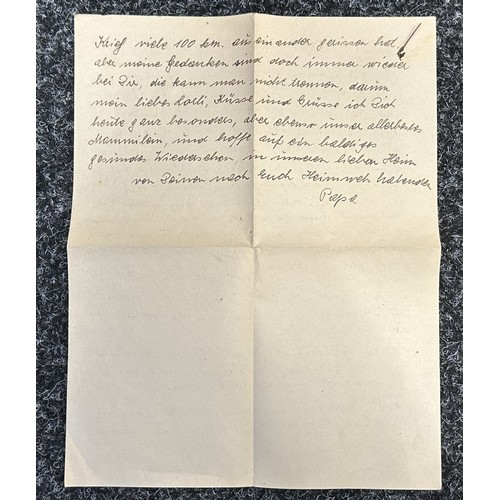 Krieg viele 100 km. auseinander gerissen hat,
aber meine Gedanken sind doch immer wieder
bei Dir, die kann man nicht trennen, darum
mein liebes Küsse und Grüsse ich Dich
heute ganz besonders, aber ebenso unser allerbestes
Mammilein, und hoffe auf ein baldiges
gesundes Wiedersehen, in unserem lieben Heim
von Deinem nach Euch Heimweh habenden
Papa